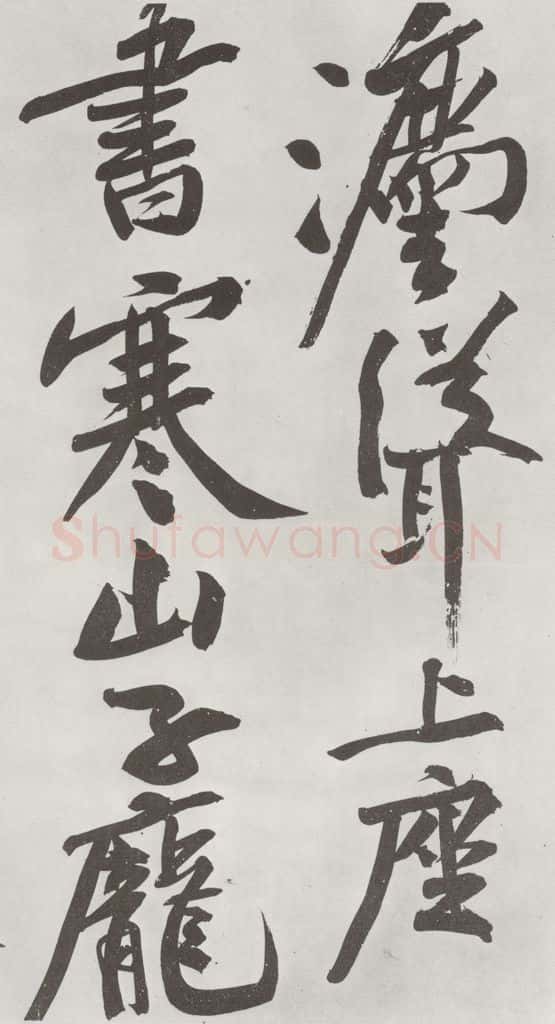 灋聳上座
書寒山子龐
Shufawang.CN